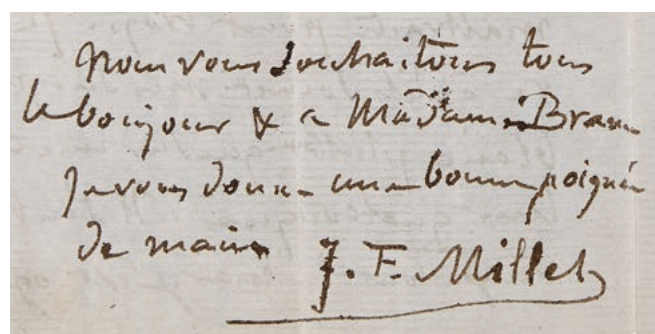 nous vous souhaitons tous
le bonjour & a Madame Braun
je vous donne une bonne poignée
de main J. F. Millet